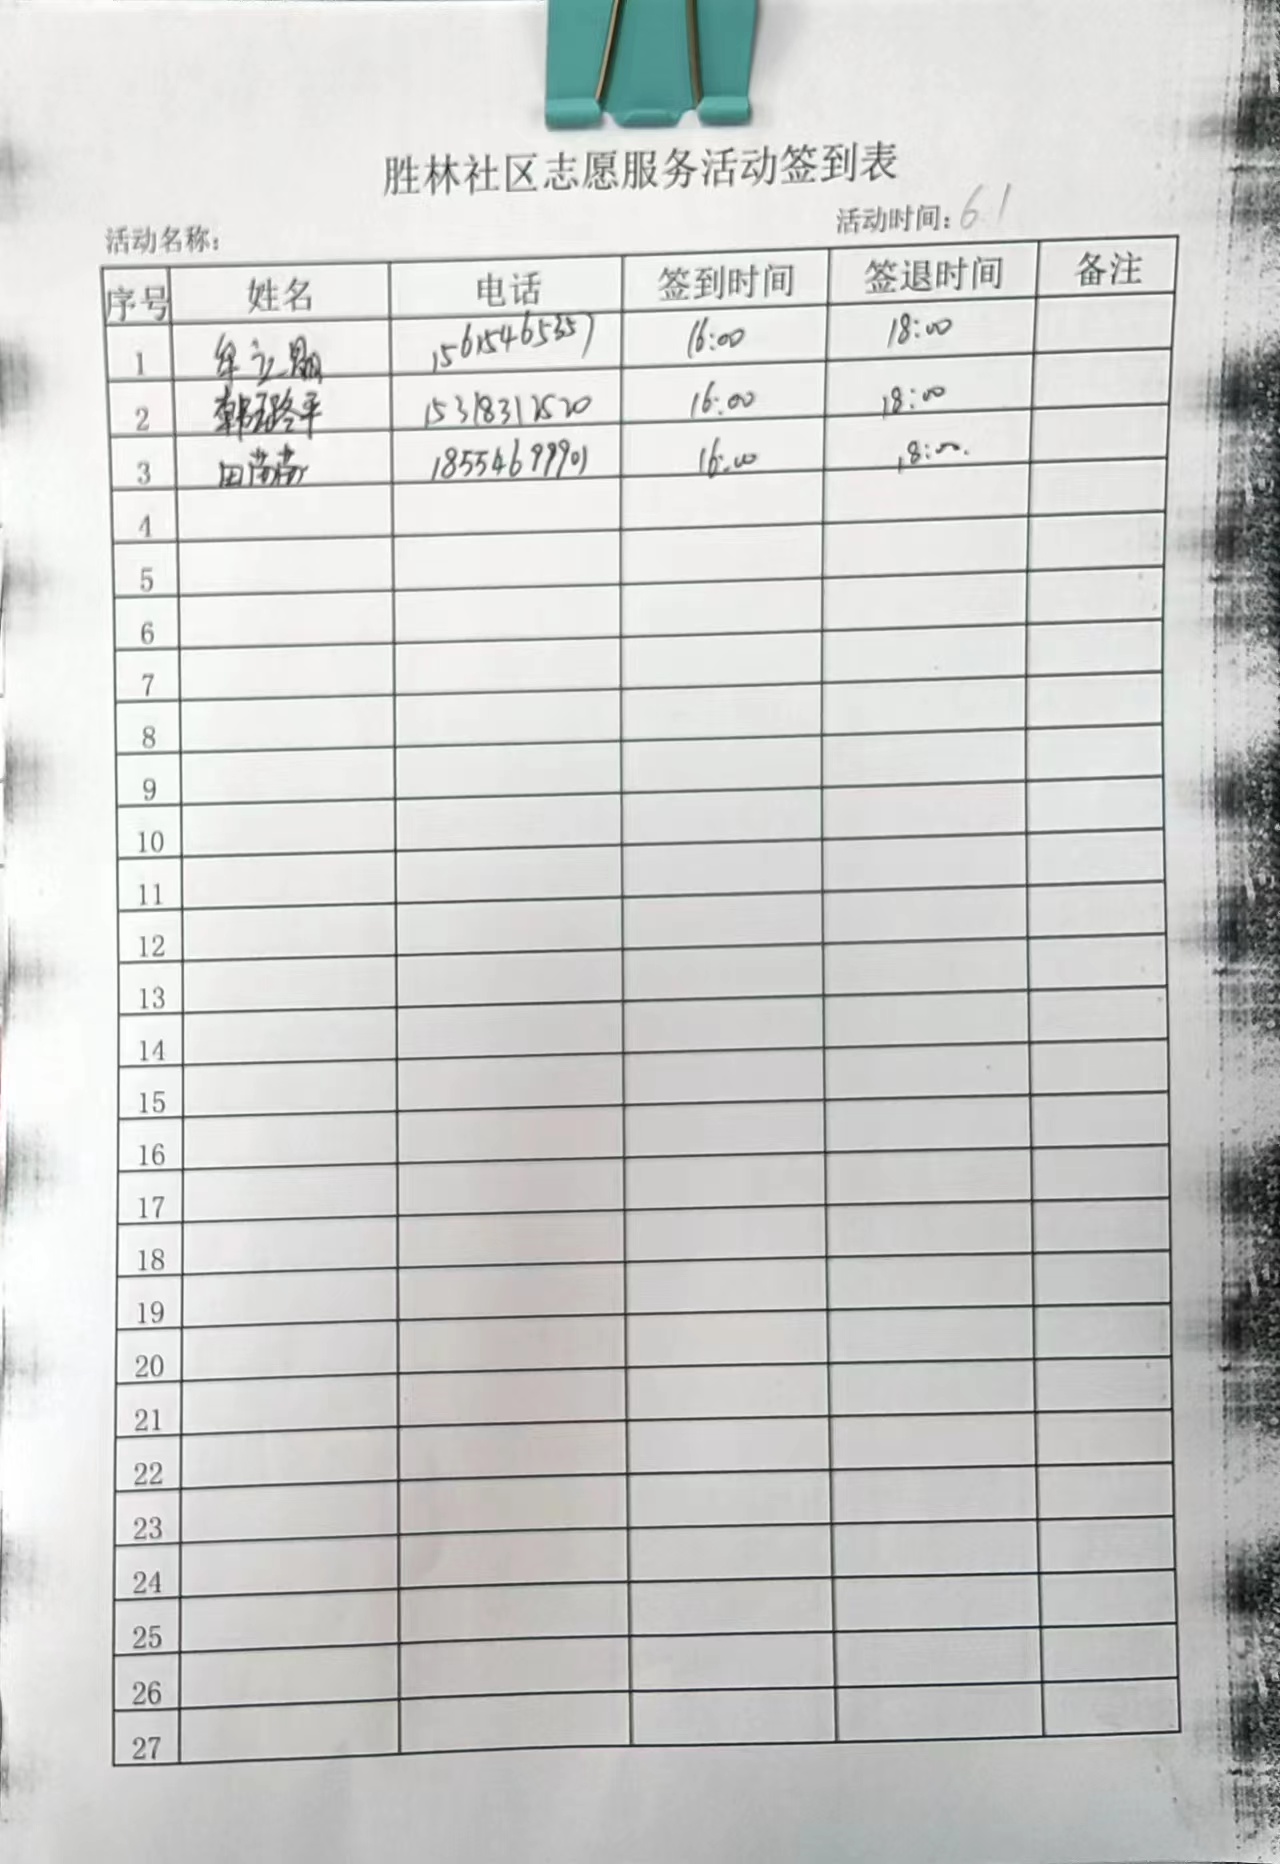 胜林社区志愿服务活动签到表
活动名称： 活动时间：6.1
序号 姓名 电话 签到时间 签退时间 备注
1 15615465357 16:00 18:00
2 韩 平 15318312520 16:00 18:00
3 田 18554699901 16:00 18:00
4
5
6
7
8
9
10
11
12
13
14
15
16
17
18
19
20
21
22
23
24
25
26
27